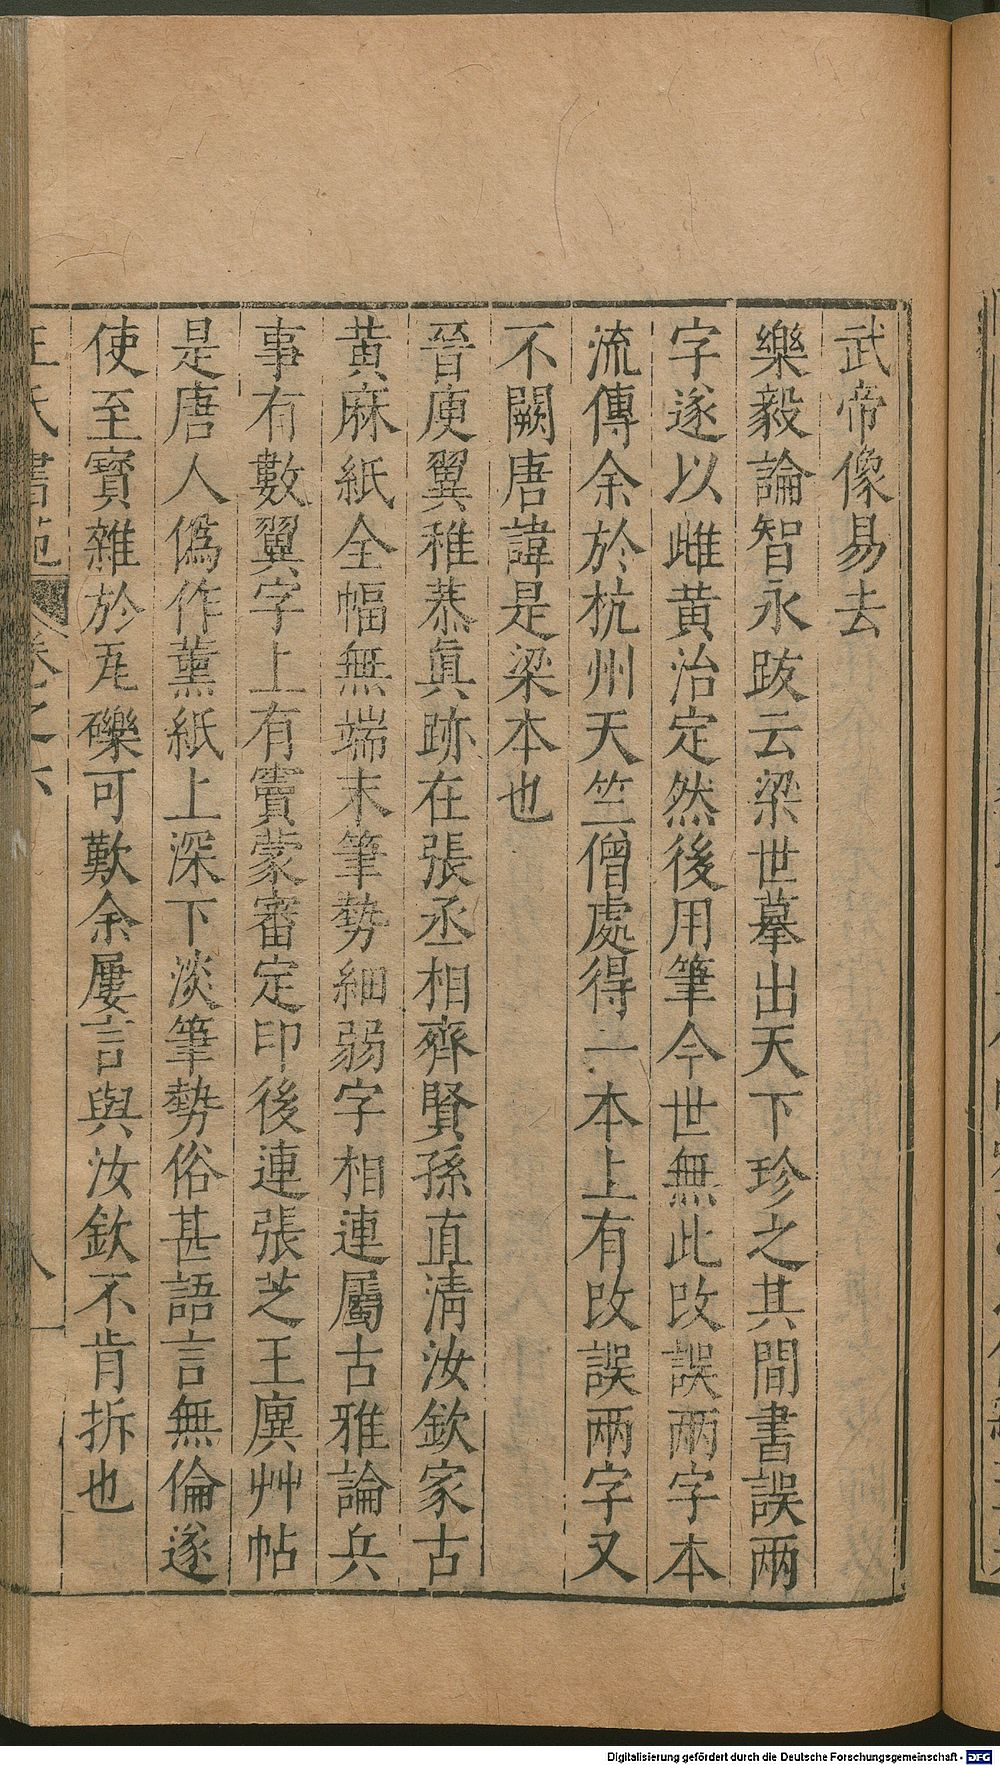 武帝像易去
樂毅論智永跋云梁世摹出天下珍之其間書誤兩
字遂以雌黃治定然後用筆今世無此改誤兩字本
流傳余於杭州天竺僧處得一本上有改誤兩字又
不闕唐諱是梁本也
晉庾翼稚恭眞跡在張丞相齊賢孫直淸汝欽家古
黃麻紙全幅無端末筆勢細弱字相連屬古雅論兵
事有數翼字上有竇蒙審定印後連張芝王廙艸帖
是唐人僞作薰紙上深下淡筆勢俗甚語言無倫遂
使至寶雜於瓦礫可歎余屢言與汝欽不肯拆也
王氏書苑 卷之六 八一
Digitalisierung gefördert durch die Deutsche Forschungsgemeinschaft - DFG